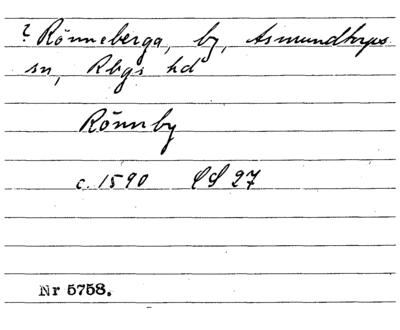 ? Rönneberga, by, Asmundtorps
sn, Rbgs hd
Rönnby
c. 1590 LS 27
Nr 5758.